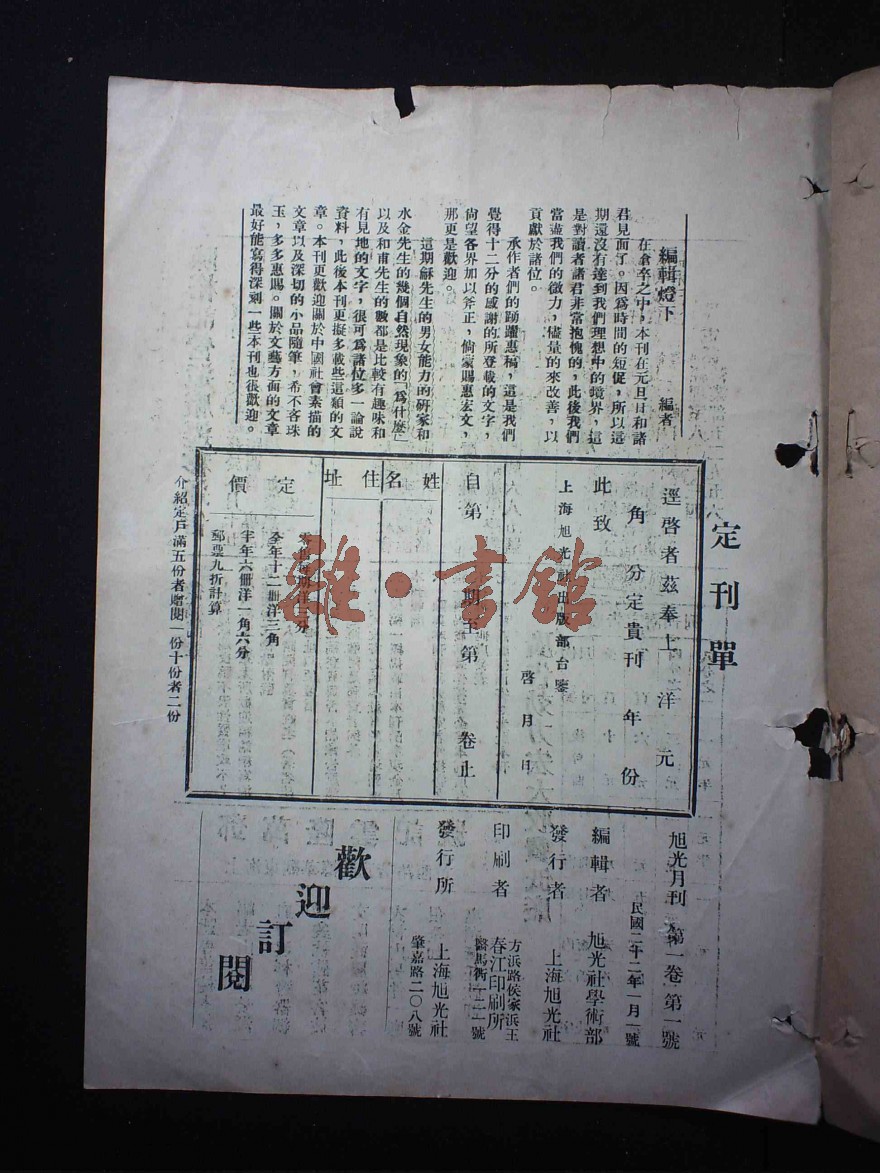 編輯燈下　編者
在倉卒之中，本刊在元旦日和諸
君見面了。因爲時間的短促，所以這
期還沒有達到我們理想中的境界，這
是對讀者諸君非常抱愧的，此後我們
當盡我們的微力，儘量的來改善，以
貢獻於諸位。
承作者們的踴躍惠稿，這是我們
覺得十二分的感謝的所登載的文字，
尙望各界加以斧正，倘蒙賜惠宏文，
那更是歡迎。
這期穌先生的男女能力的研家和
水金先生的幾個自然現象的「爲什麼」
以及和甫先生的數都是比較有趣味和
有見地的文字，很可爲諸位多一論說
資料，此後本刊更擬多載些這類的文
章。本刊更歡迎關於中國社會素描的
文章以及深切的小品隨筆，希不吝珠
玉，多多惠賜。關於文藝方面的文章
最好能寫得深刻一些本刊也很歡迎。
定刊單
逕啓者茲奉上　洋　元
角　分定貴刊　年　份
此致
上海旭光社出版部台鑒
啓　月　日
自第　期至第　卷止
姓名
住址
定價
零售每期洋三分
全年十二冊洋三角
半年六冊洋一角六分
郵票九折計算
介紹定戶滿五份者贈閱一份十份者二份
旭光月刊　第一卷第一號
民國二十二年一月一號
編輯者　旭光社學術部
發行者　上海旭光社
印刷者　春江印刷所
方浜路侯家浜王
醫馬衖一二一號
發行所　上海旭光社
肇嘉路二〇八號
歡迎訂閱
雜·書館